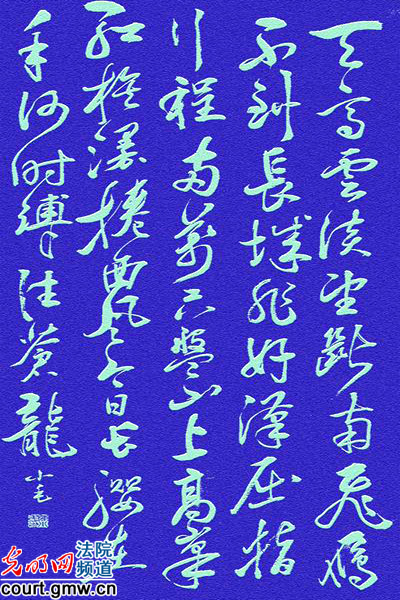 天高雲淡望斷南飛雁
不到長城非好漢屈指
行程兩萬六盤山上高峯
紅旗漫捲西風今日長纓在
手何时縛住蒼龍
小毛
光明网 法院频道
court.gmw.cn